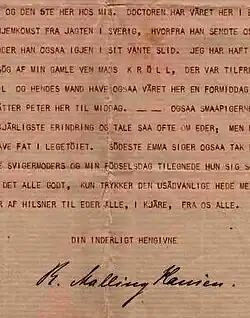 OG DEN 5TE HER HOS MIG. DOCTOREN HAR VÆRET HER I E
HJEMKOMST FRA JAGTEN I SVERIG, HVORFRA HAN SENDTE OS
DER HAN OGSAA IGJEN I SIT VANTE SLID. JEG HAR HAFT
SÖG AF MIN GAMLE VEN MADS K R Ö L L, DER VAR TILFR
L OG HENDES MAND HAVE OGSAA VÆRET HER EN FORMIDDAG
ÅTTER PETER HER TIL MIDDAG. ___ OGSAA SMAAPIGERN
SJÆRLIGSTE ERINDRING OG TALE SAA OFTE OM EDER; MEN
AVE FAT I LEGETÖIET. SÖDESTE EMMA SIGER OGSAA TAK
SVIGERMODERS OG MIN FÖDSELSDAG TILEGNEDE HUN SIG S
DET ALLE GODT, KUN TRYKKER DEN USÆDVANLIGE HEDE ME
R AF HILSNER TIL EDER ALLE, I KJÆRE, FRA OS ALLE.
DIN INDERLIGT HENGIVNE
R. Malling Hansen.